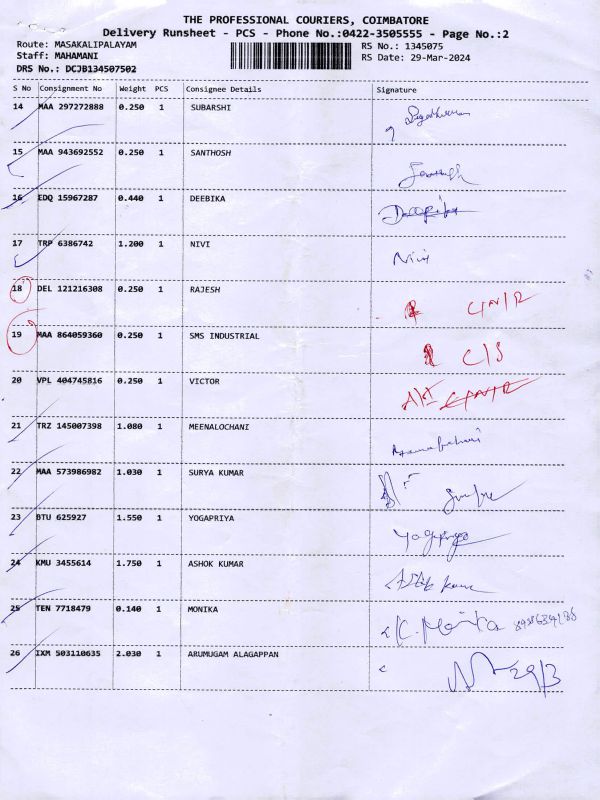 THE PROFESSIONAL COURIERS, COIMBATORE
Delivery Runsheet - PCS - Phone No.:0422-3505555 - Page No.:2
Route: MASAKALIPALAYAM
RS No.: 1345075
Staff: MAHAMANI
RS Date: 29-Mar-2024
DRS No.: DCJB134507502
S No Consignment No Weight PCS Consignee Details Signature
14 MAA 297272888 0.250 1 SUBARSHI
15 MAA 943692552 0.250 1 SANTHOSH
16 EDQ 15967287 0.440 1 DEEBIKA
17 TRP 6386742 1.200 1 NIVI Nivi
18 DEL 121216308 0.250 1 RAJESH C/N/R
19 MAA 864059360 0.250 1 SMS INDUSTRIAL C/S
20 VPL 404745816 0.250 1 VICTOR C/N/R
21 TRZ 145007398 1.080 1 MEENALOCHANI
22 MAA 573986982 1.030 1 SURYA KUMAR
23 BTU 625927 1.550 1 YOGAPRIYA Yogapriya
24 KMU 3455614 1.750 1 ASHOK KUMAR
25 TEN 7718479 0.140 1 MONIKA K. Monika
26 IXM 503110635 2.030 1 ARUMUGAM ALAGAPPAN 29/3